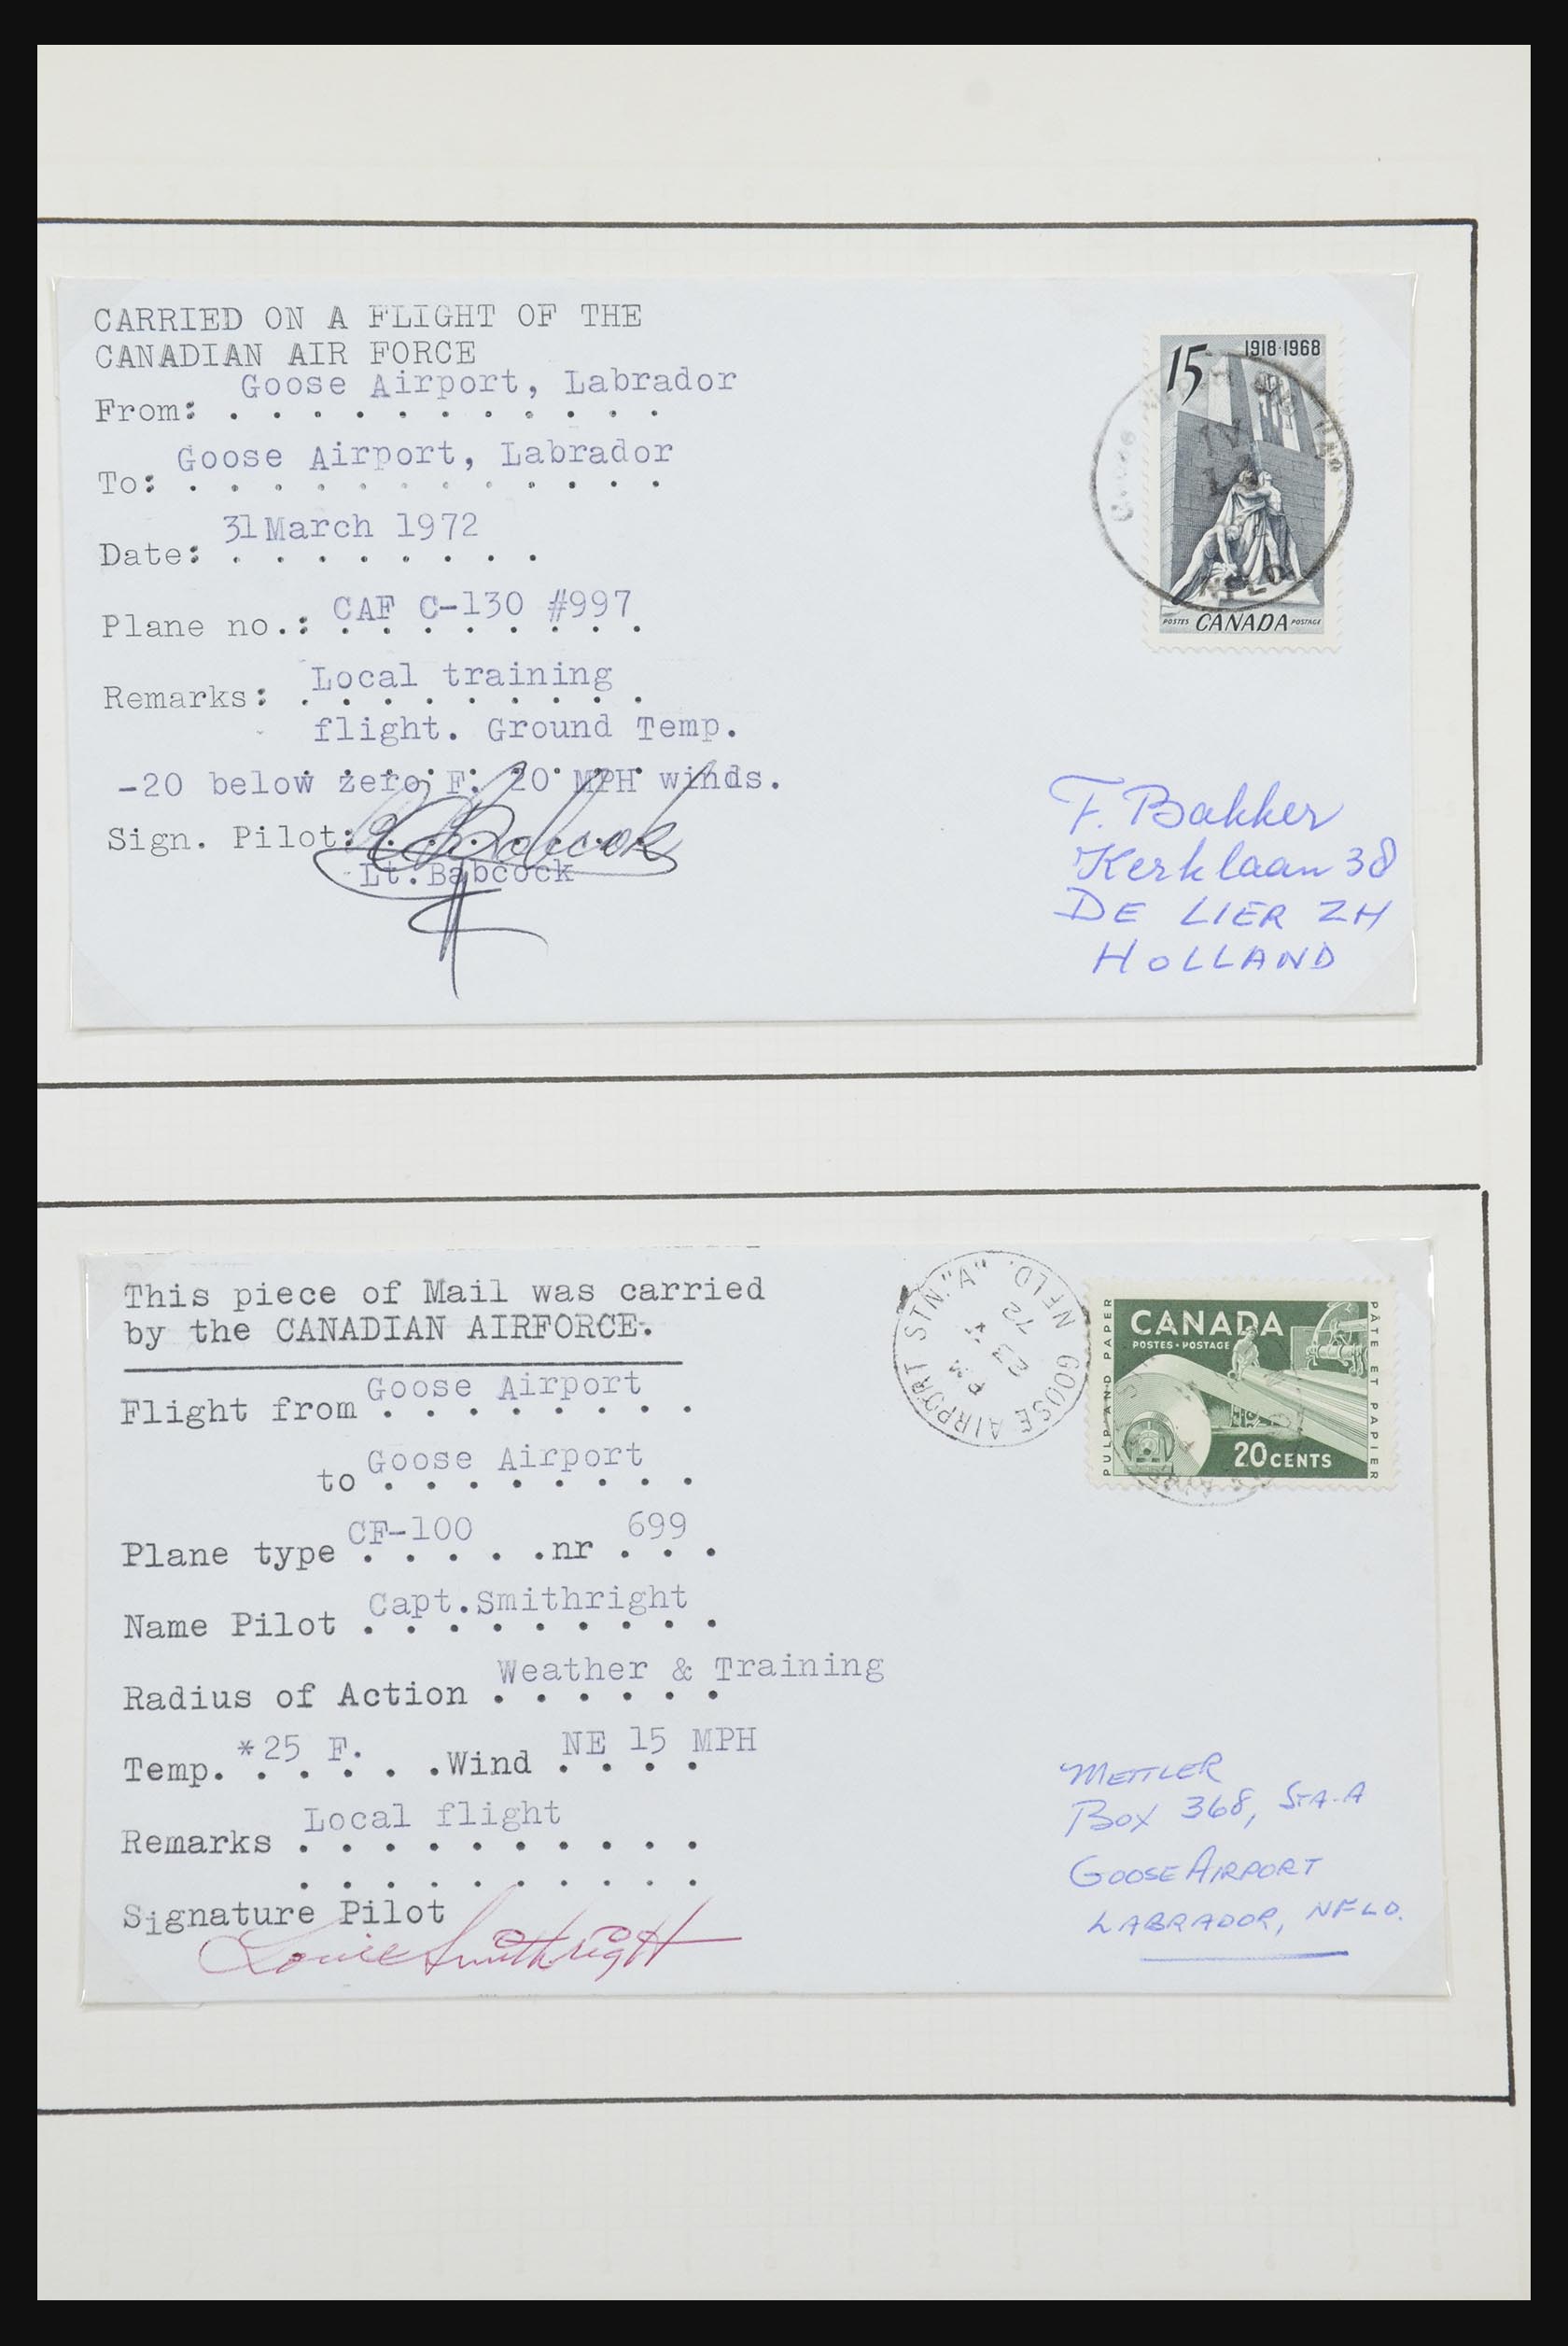 CARRIED ON A FLIGHT OF THE
CANADIAN AIR FORCE
From: Goose Airport, Labrador
To: Goose Airport, Labrador
Date: 31 March 1972
Plane no.: CAF C-130 #997
Remarks: Local training
flight. Ground Temp.
-20 below zero F. 20 MPH winds.
Sign. Pilot:
Lt. Babcock
15 1918·1968
NFLD
POSTES CANADA POSTAGE
F. Bakker
Kerklaan 38
DE LIER ZH
HOLLAND
This piece of Mail was carried
by the CANADIAN AIRFORCE.
Flight from Goose Airport
to Goose Airport
Plane type CF-100 nr 699
Name Pilot Capt. Smithright
Radius of Action Weather & Training
Temp. *25 F. Wind NE 15 MPH
Remarks Local flight
Signature Pilot
Louie Smithright
GOOSE AIRPORT STN. "A" NFLD.
PM
23
72
CANADA
POSTES·POSTAGE
PULP AND PAPER
PÂTE ET PAPIER
20 CENTS
METTLER
BOX 368, STA. A
GOOSE AIRPORT
LABRADOR, NFLD.